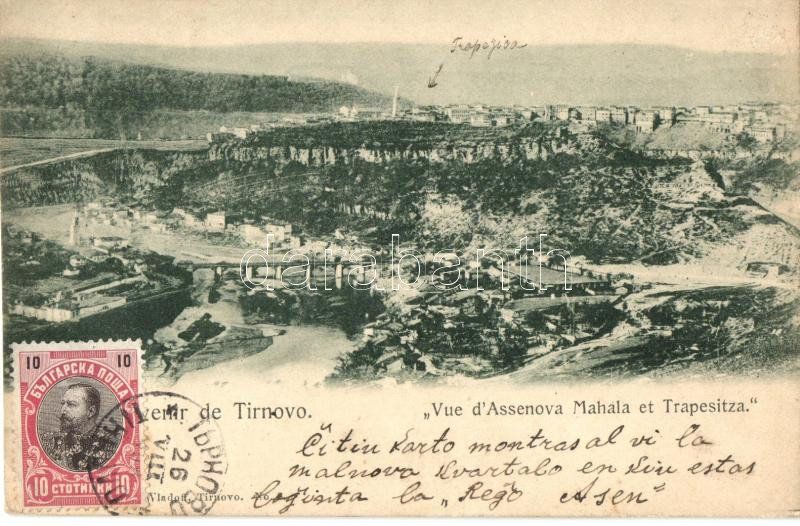 Trapezica
databanth
10 10
БЪЛГАРСКА ПОЩА
10 СТОТИНКИ 10
ТЪРНОВО
26
VIII
venir de Tirnovo.
„Vue d'Assenova Mahala et Trapesitza.“
Vladoff, Tirnovo. No.
Ĉi tiu karto montras al vi la
malnova kvartalo en kiu estas
loĝinta la „Reĝo Asen"